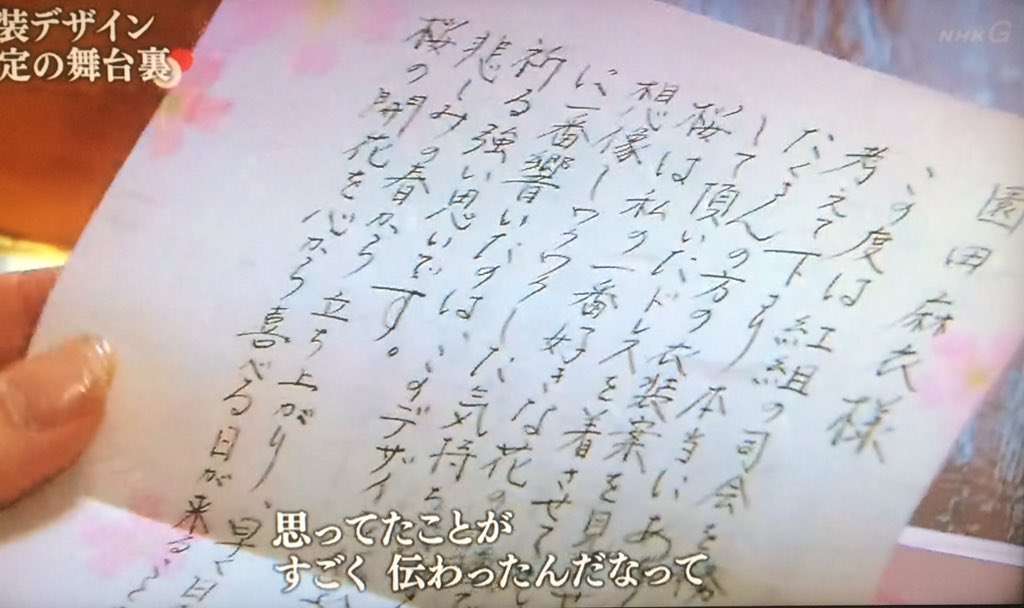 装デザイン
定の舞台裏
NHK G
園田麻衣様
この度は紅組の司会を
考えて下さり 本当にあ
たくさんの方の衣装案を見
して頂いたドレスを着させて
桜は私の一番好きな花の
想像しワクワクした気持ち
に一番響いたのは、このデザイ
祈る強い思いです。
悲しみの春から 立ち上がり、早く
桜の開花を心から喜べる日が来る
思ってたことが
すごく 伝わったんだなって